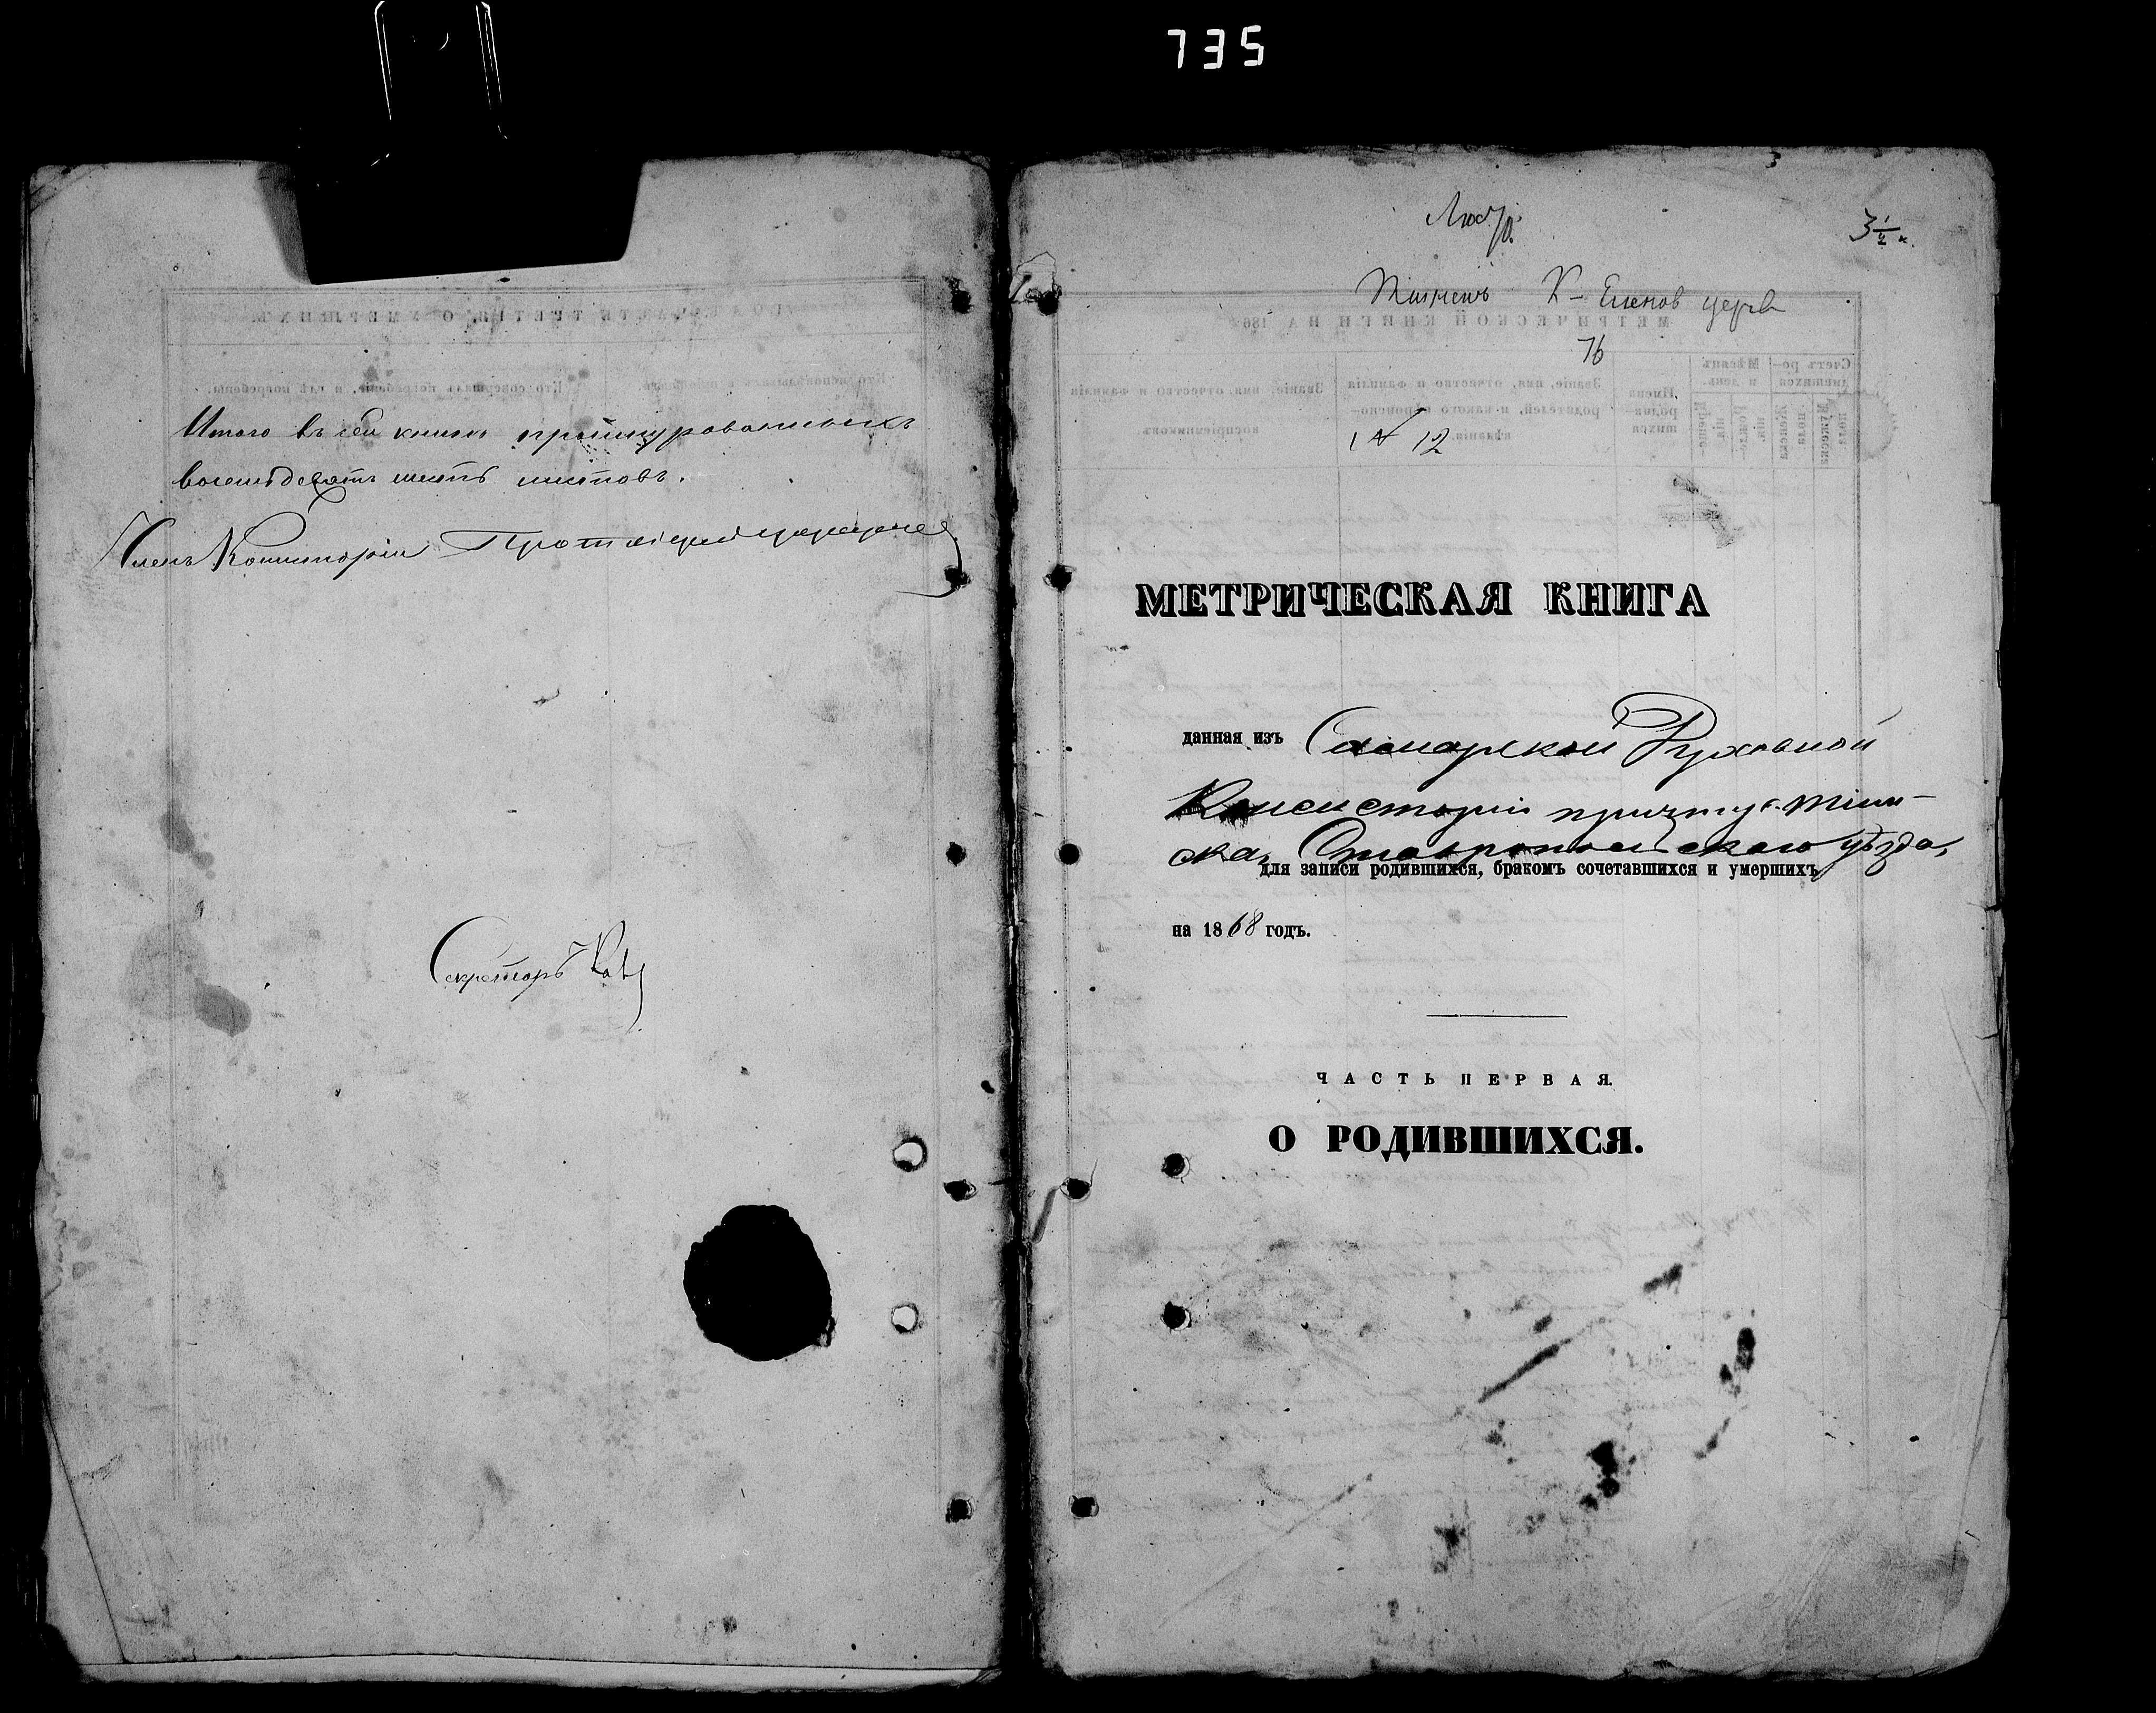 735
Итого въ сей книге прошнурованныхъ
восемьдесятъ шесть листовъ.
Членъ Консисторіи Протоіерей
Секретарь
3
3 1/2 к.
К-Еленов церв
76
N 12
МЕТРИЧЕСКАЯ КНИГА
данная изъ Самарской Духовной
Консисторіи причту с. Тіин-
ска, Ставропольскаго уѣзда,
для записи родившихся, бракомъ сочетавшихся и умершихъ
на 1868 годъ.
ЧАСТЬ ПЕРВАЯ.
О РОДИВШИХСЯ.